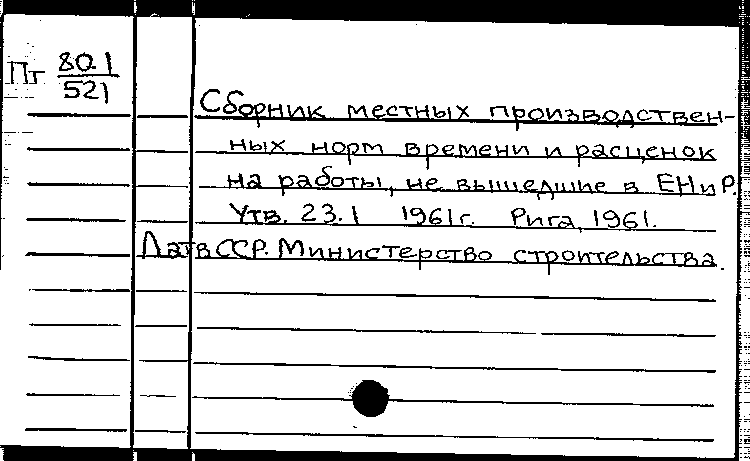 Пт 80.1
521
Сборник местных производствен-
ных норм времени и расценок
на работы, не вышедшие в ЕНиР.
Утв. 23.1 1961г. Рига, 1961.
ЛатвССР. Министерство строительства.